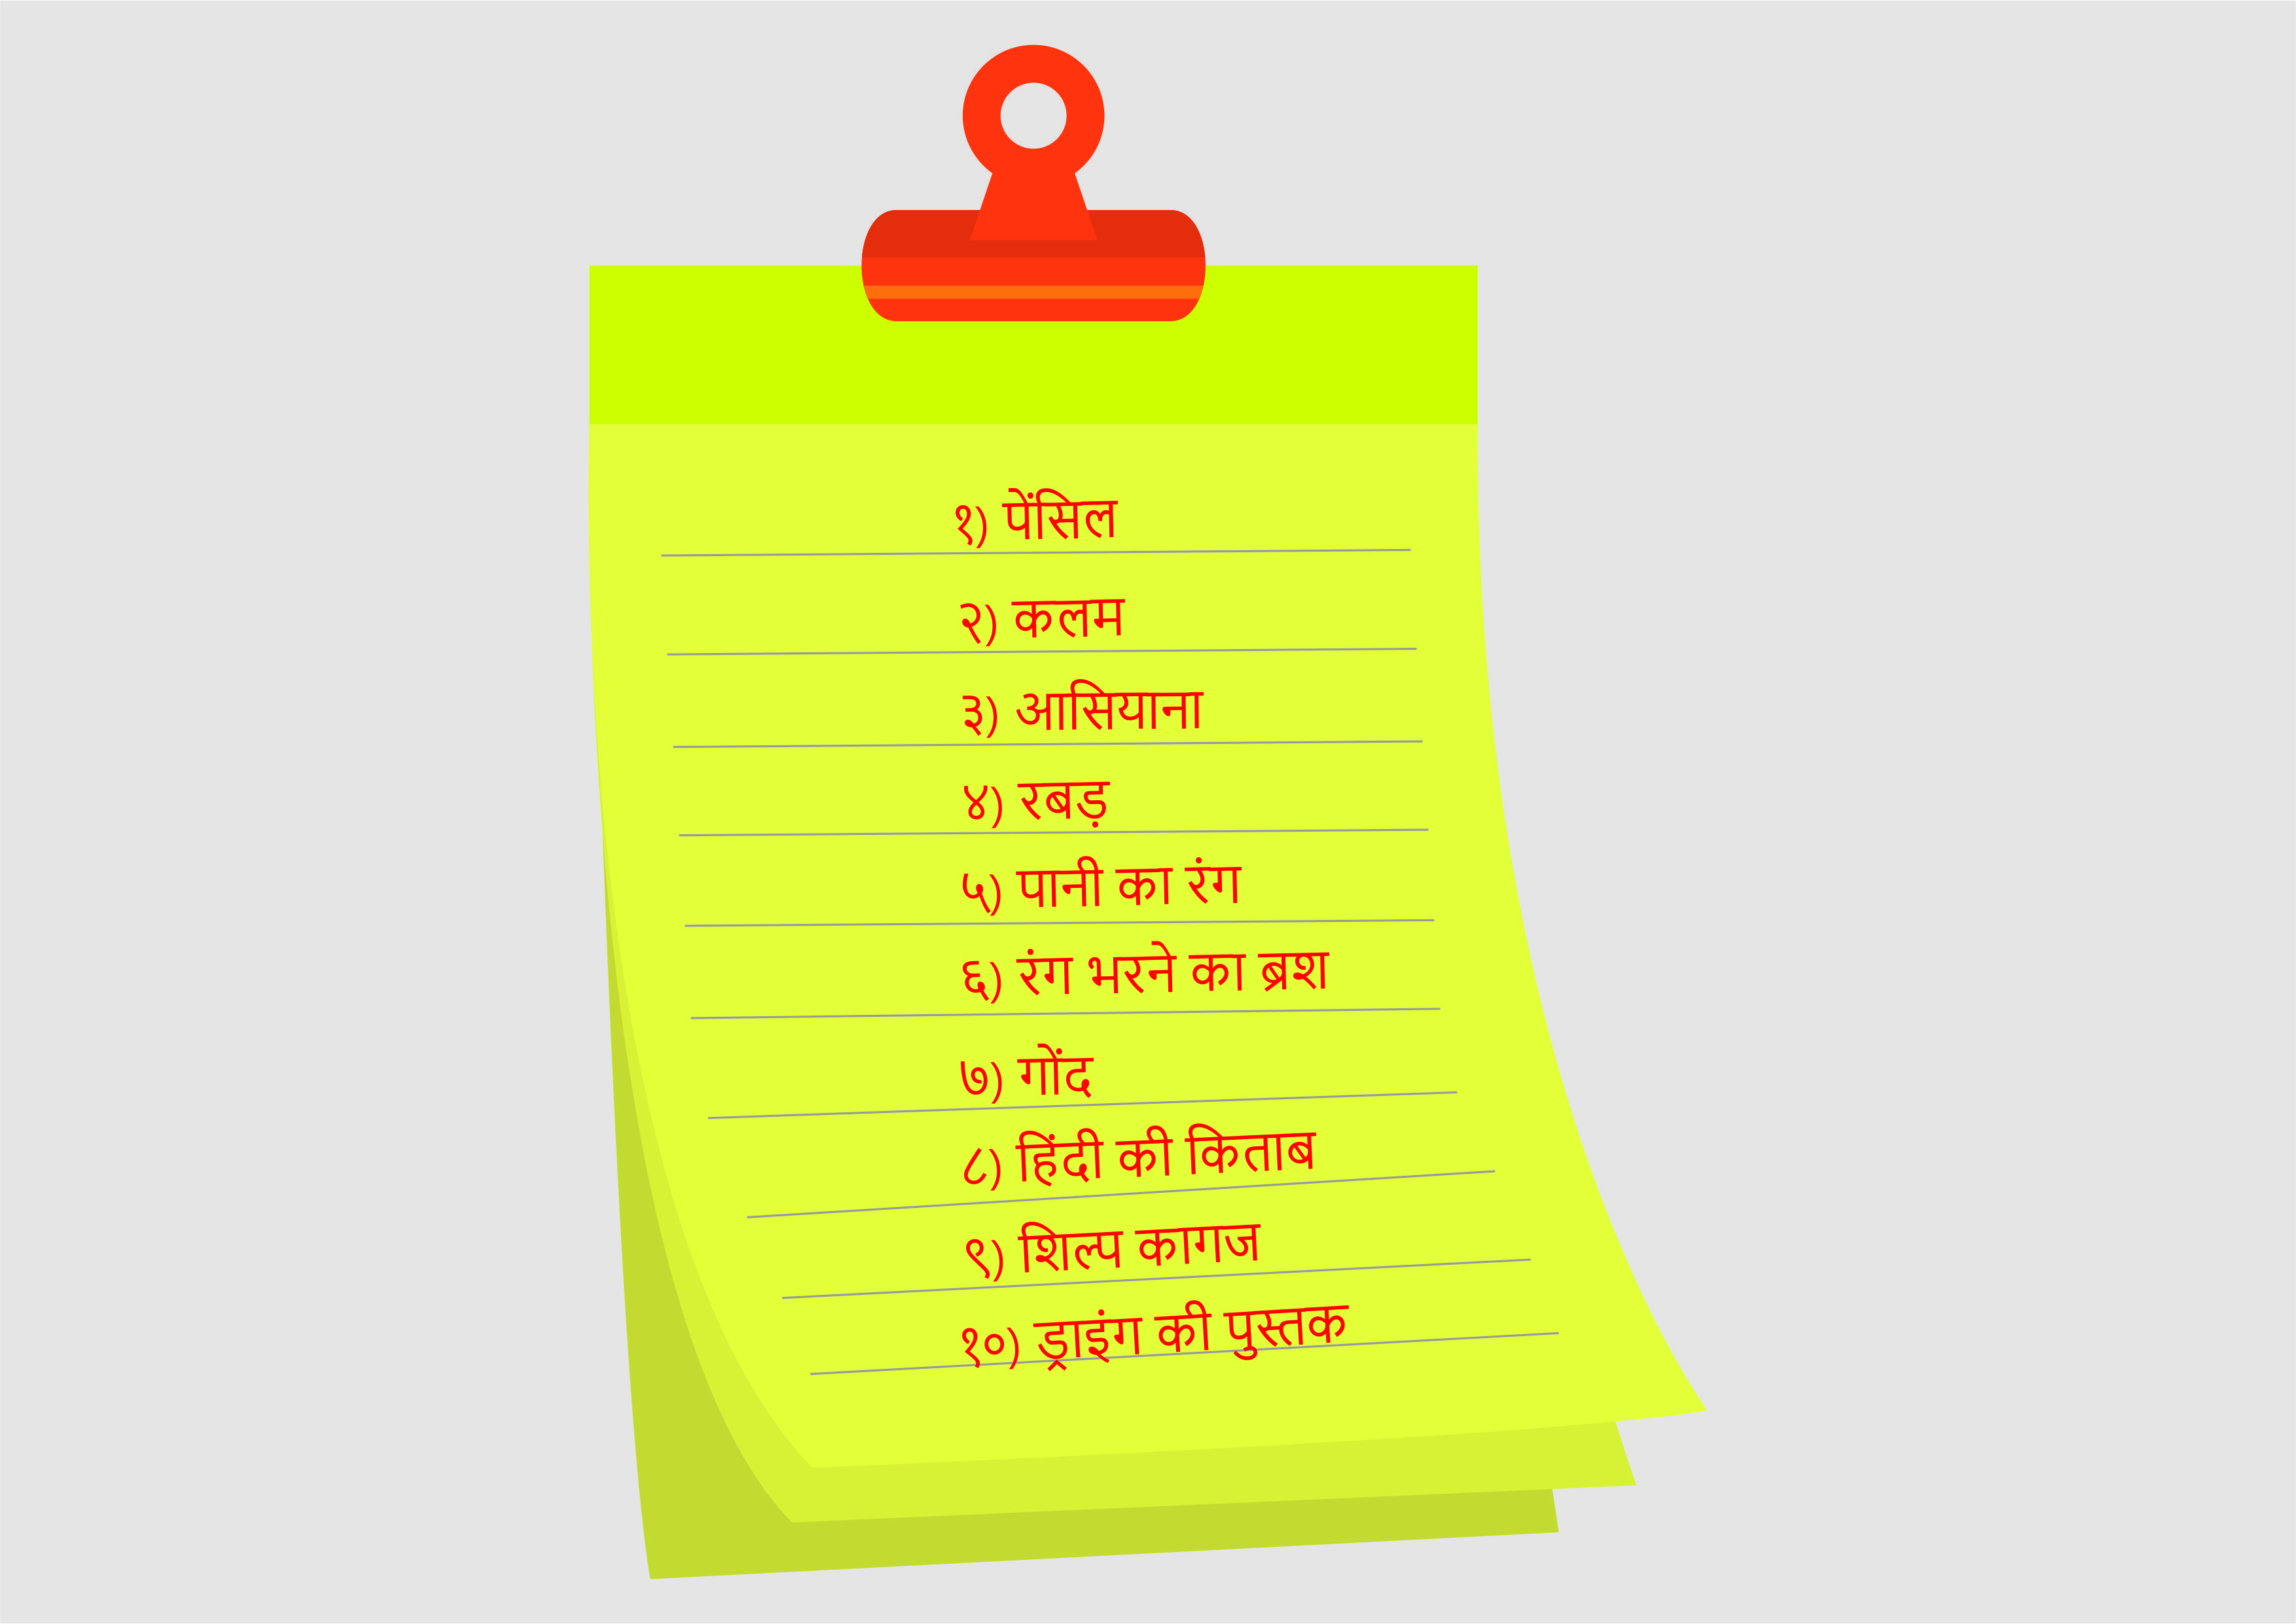 १) पेंसिल
२) कलम
३) आसियाना
४) रबड़
५) पानी का रंग
६) रंग भरने का ब्रश
७) गोंद
८) हिंदी की किताब
९) शिल्प कागज
१०) ड्राइंग की पुस्तक